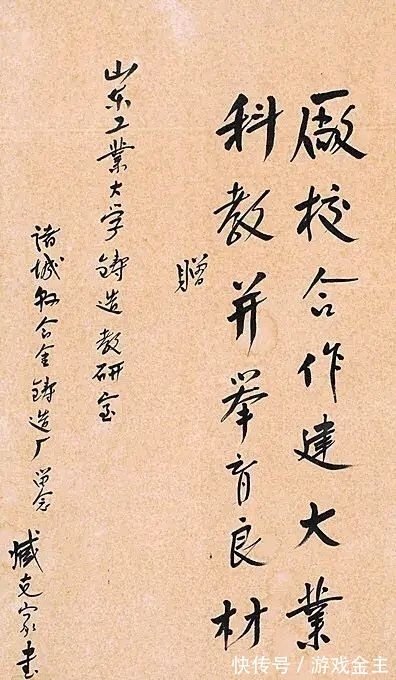 厰校合作建大业
科教并举育良材
赠
山东工业大学铸造教研室
诸城合金铸造厂留念
臧克家书
快传号/游戏金主